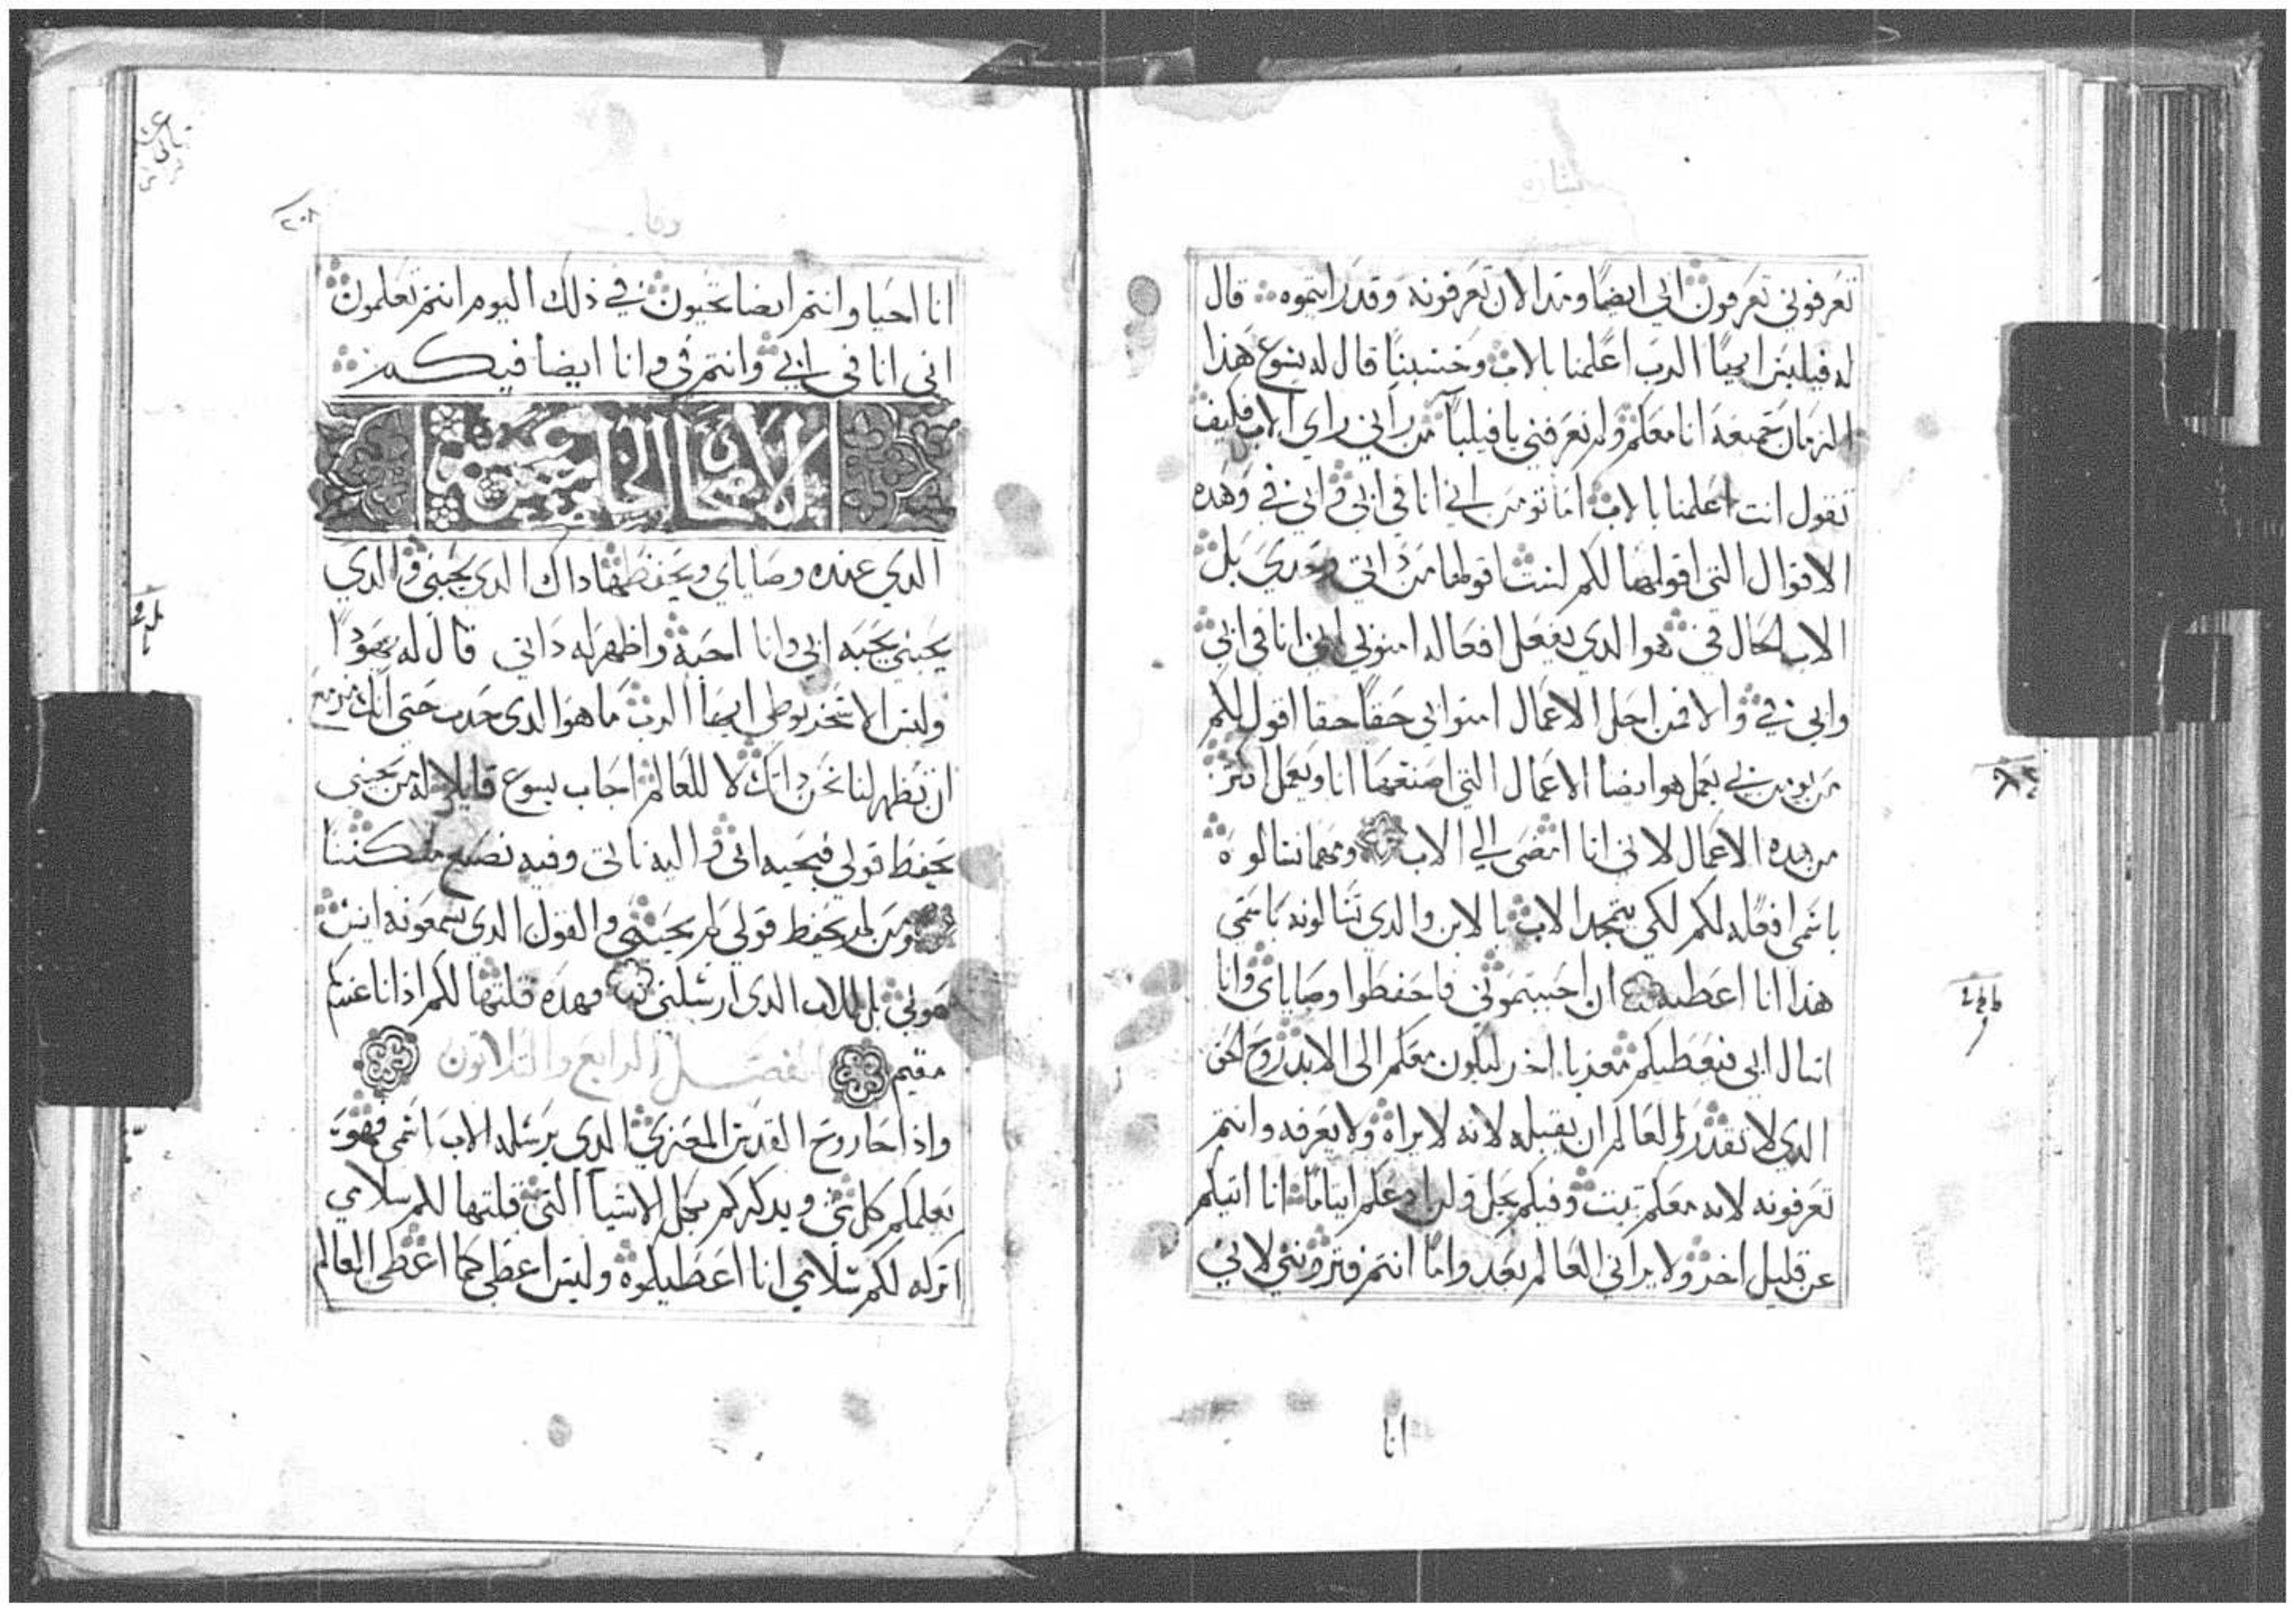 تعرفوني تعرفون ابي ايضا ومند الان تعرفونه وقد رايتموه قال
له فيلبس ايها الرب اعلمنا بالاب وحسبنا قال له يسوع هذا
الزمان جميعه انا معكم ولم تعرفني يا فيلبا من راني راي الاب فكيف
تقول انت اعلمنا بالاب اما تومن اني انا في ابي وابي في وهده
الاقوال التي اقولها لكم لست اقولها من داتي وحدي بل
الاب الحال في هو الدي يفعل افعاله امنو بي اني انا في ابي
وابي في والا فمن اجل الاعمال امنوا بي حقا حقا اقول لكم
من يومن بي يعمل هو ايضا الاعمال التي اصنعها انا ويعمل اكثر
من هده الاعمال لاني انا امضي الي الاب ومهما تسالوه
باسمي افعله لكم لكي يتمجد الاب بالابن والدي تسالونه باسمي
هذا انا اعطيه ان احببتموني فاحفظوا وصاياي وانا
اسال ابي فيعطيكم معزيا اخر ليكون معكم الى الابد روح الحق
الدي لا يقدر العالم ان يقبله لانه لا يراه ولا يعرفه وانتم
تعرفونه لانه معكم يبت وفيكم يحل ولن ادعكم ايتاما انا اتيكم
عن قليل اخر ولا يراني العالم بعد واما انتم فتروني لاني
انا
٢٠٨
انا احيا وانتم ايضا تحيون في ذلك اليوم انتم تعلمون
اني انا في ابي وانتم في وانا ايضا فيكم
الاصحاح الخامس عشر
الدي عنده وصاياي ويحفظها داك الدي يحبني والدي
يحبني يحبه ابي وانا احبه واظهر له داتي قال له يهودا
وليس الاسخريوطي ايها الرب ما هو الدي حدث حتى انك مزمع
ان تظهر لنا نحن داتك لا للعالم اجاب يسوع قايلا له من يحبني
يحفظ قولي فيحبه ابي واليه ناتي وفيه نصنع مسكننا
ومن لم يحفظ قولي لم يحبني والقول الدي سمعونه ليس
هو لي بل للاب الدي ارسلني فهده قلتها لكم اذ انا عندكم
مقيم الفصل الرابع والثلاثون
واذا جا روح القدس المعزي الدي يرسله الاب باسمي فهو
يعلمكم كل شي ويدكركم بكل الاشيا التي قلتها لكم سلامي
اتركه لكم سلامي انا اعطيكموه وليس اعطي كما اعطى العالم